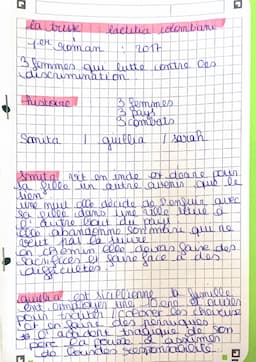 la tresse laetitia colombani
1er roman : 2017
3 femmes qui lutte contre les
discrimination
histoire 3 femmes
3 pays
3 combats
Smita / guillia / sarah
smita vit en inde et désire pour
sa fille un autre avenir que le
sien
une nuit elle décide de s'enfuir avec
sa fille dans une ville situé à
l'autre bout du pays
elle abandonne son mari qui ne
veut pas la suivre
en chemin elle devras faire des
sacrifices et faire face à des
difficultés.
guillia est sicilienne la famille
pour traiter / colorer les cheveux
et en faire des perruques
l'accident tragique de son
père la pousse à assumer
de lourdes responsabilité